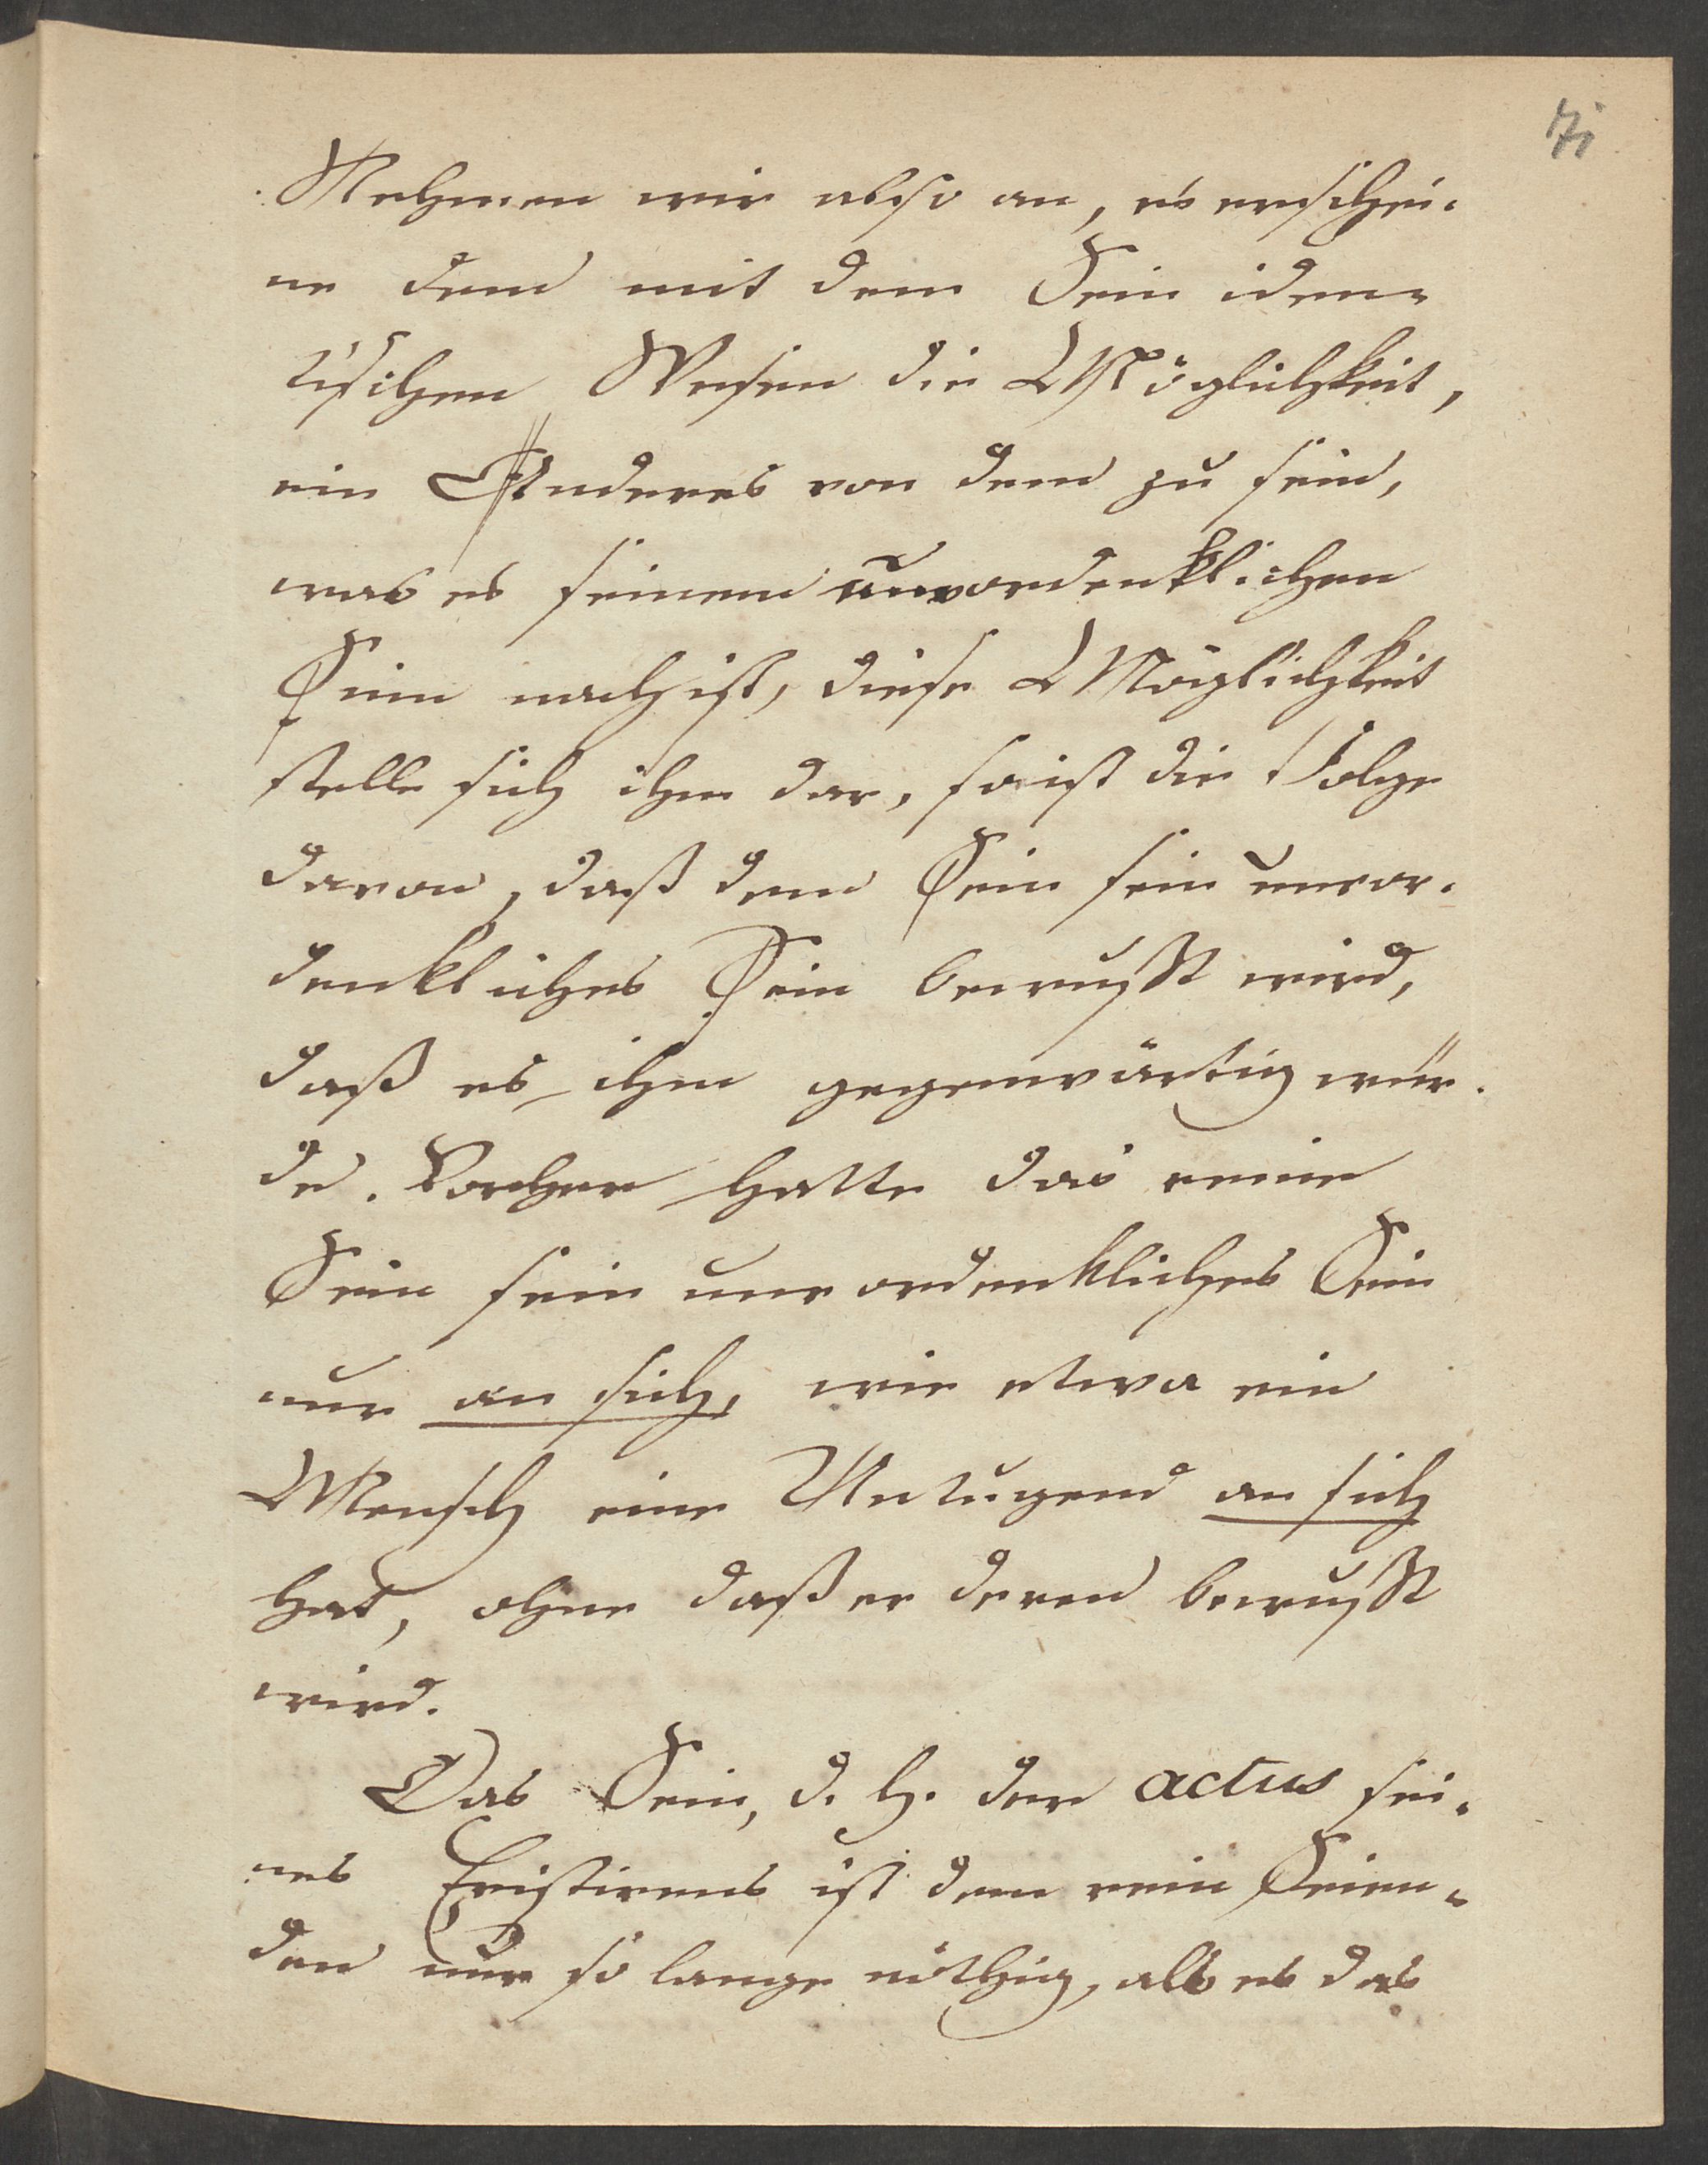 71
Nehmen wir also an, es erschei-
ne dem mit dem Sein iden-
tischen Wesen die Möglichkeit,
ein Anderes von dem zu sein,
was es seinem unvordenklichen
Sein nach ist, diese Möglichkeit
stelle sich ihm dar, so ist die Folge
davon, daß dem Sein sein unvor-
denkliches Sein bewußt wird,
daß es ihm gegenwärtig wür-
de. Vorher hatte das reine
Sein sein unvordenkliches Sein
nur an sich, wie etwa ein
Mensch eine Untugend an sich
hat, ohne daß er deren bewußt
wird.
Das Sein, d. h. der actus sei-
nes Existirens ist dem rein Seien-
den nur so lange nöthig, als es das